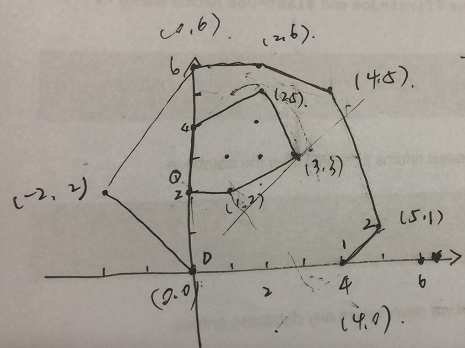 (0,6).
(2,6).
6
(4,5)
(2,5)
4
(3,3)
(-2, 2)
2
(1,2)
2
(5,1)
0
1
(0,0)
2
4
6
(4,0)